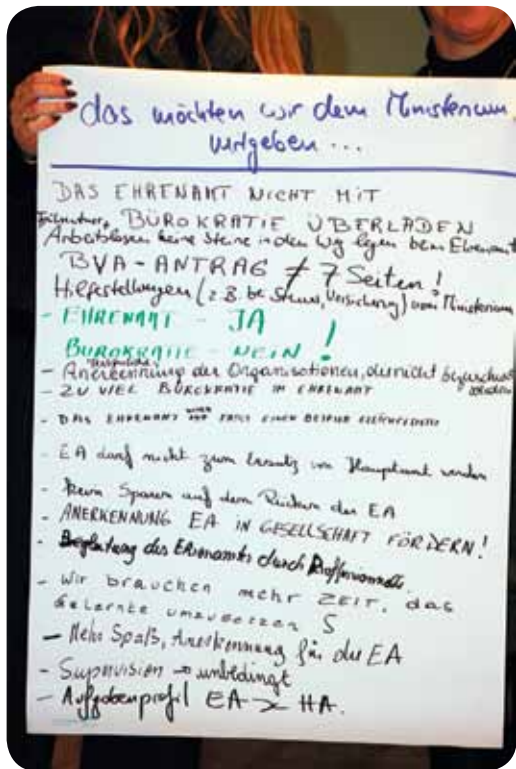 das möchten wir dem Ministerium
mitgeben ...
DAS EHRENAMT NICHT MIT
BÜROKRATIE ÜBERLADEN
Arbeitslosen keine Steine in den Weg legen beim Ehrenamt
BVA - ANTRAG ≠ 7 Seiten!
Hilfestellungen (z.B. bei Steuer, Versicherung) vom Ministerium
- EHRENAMT - JA
BÜROKRATIE - NEIN !
- Anerkennung der Organisationen, die nicht
- ZU VIEL BÜROKRATIE IM EHRENAMT
- DAS EHRENAMT EINEM BERUF
- EA darf nicht zum Ersatz von Hauptamt werden
- Kein Sparen auf dem Rücken der EA
- ANERKENNUNG EA IN GESELLSCHAFT FÖRDERN!
- Begleitung des Ehrenamts durch Professionelle
- Wir brauchen mehr ZEIT, das
Gelernte umzusetzen
- Mehr Spaß, Anerkennung für die EA
- Supervision → unbedingt
- Aufgabenprofil EA > HA.